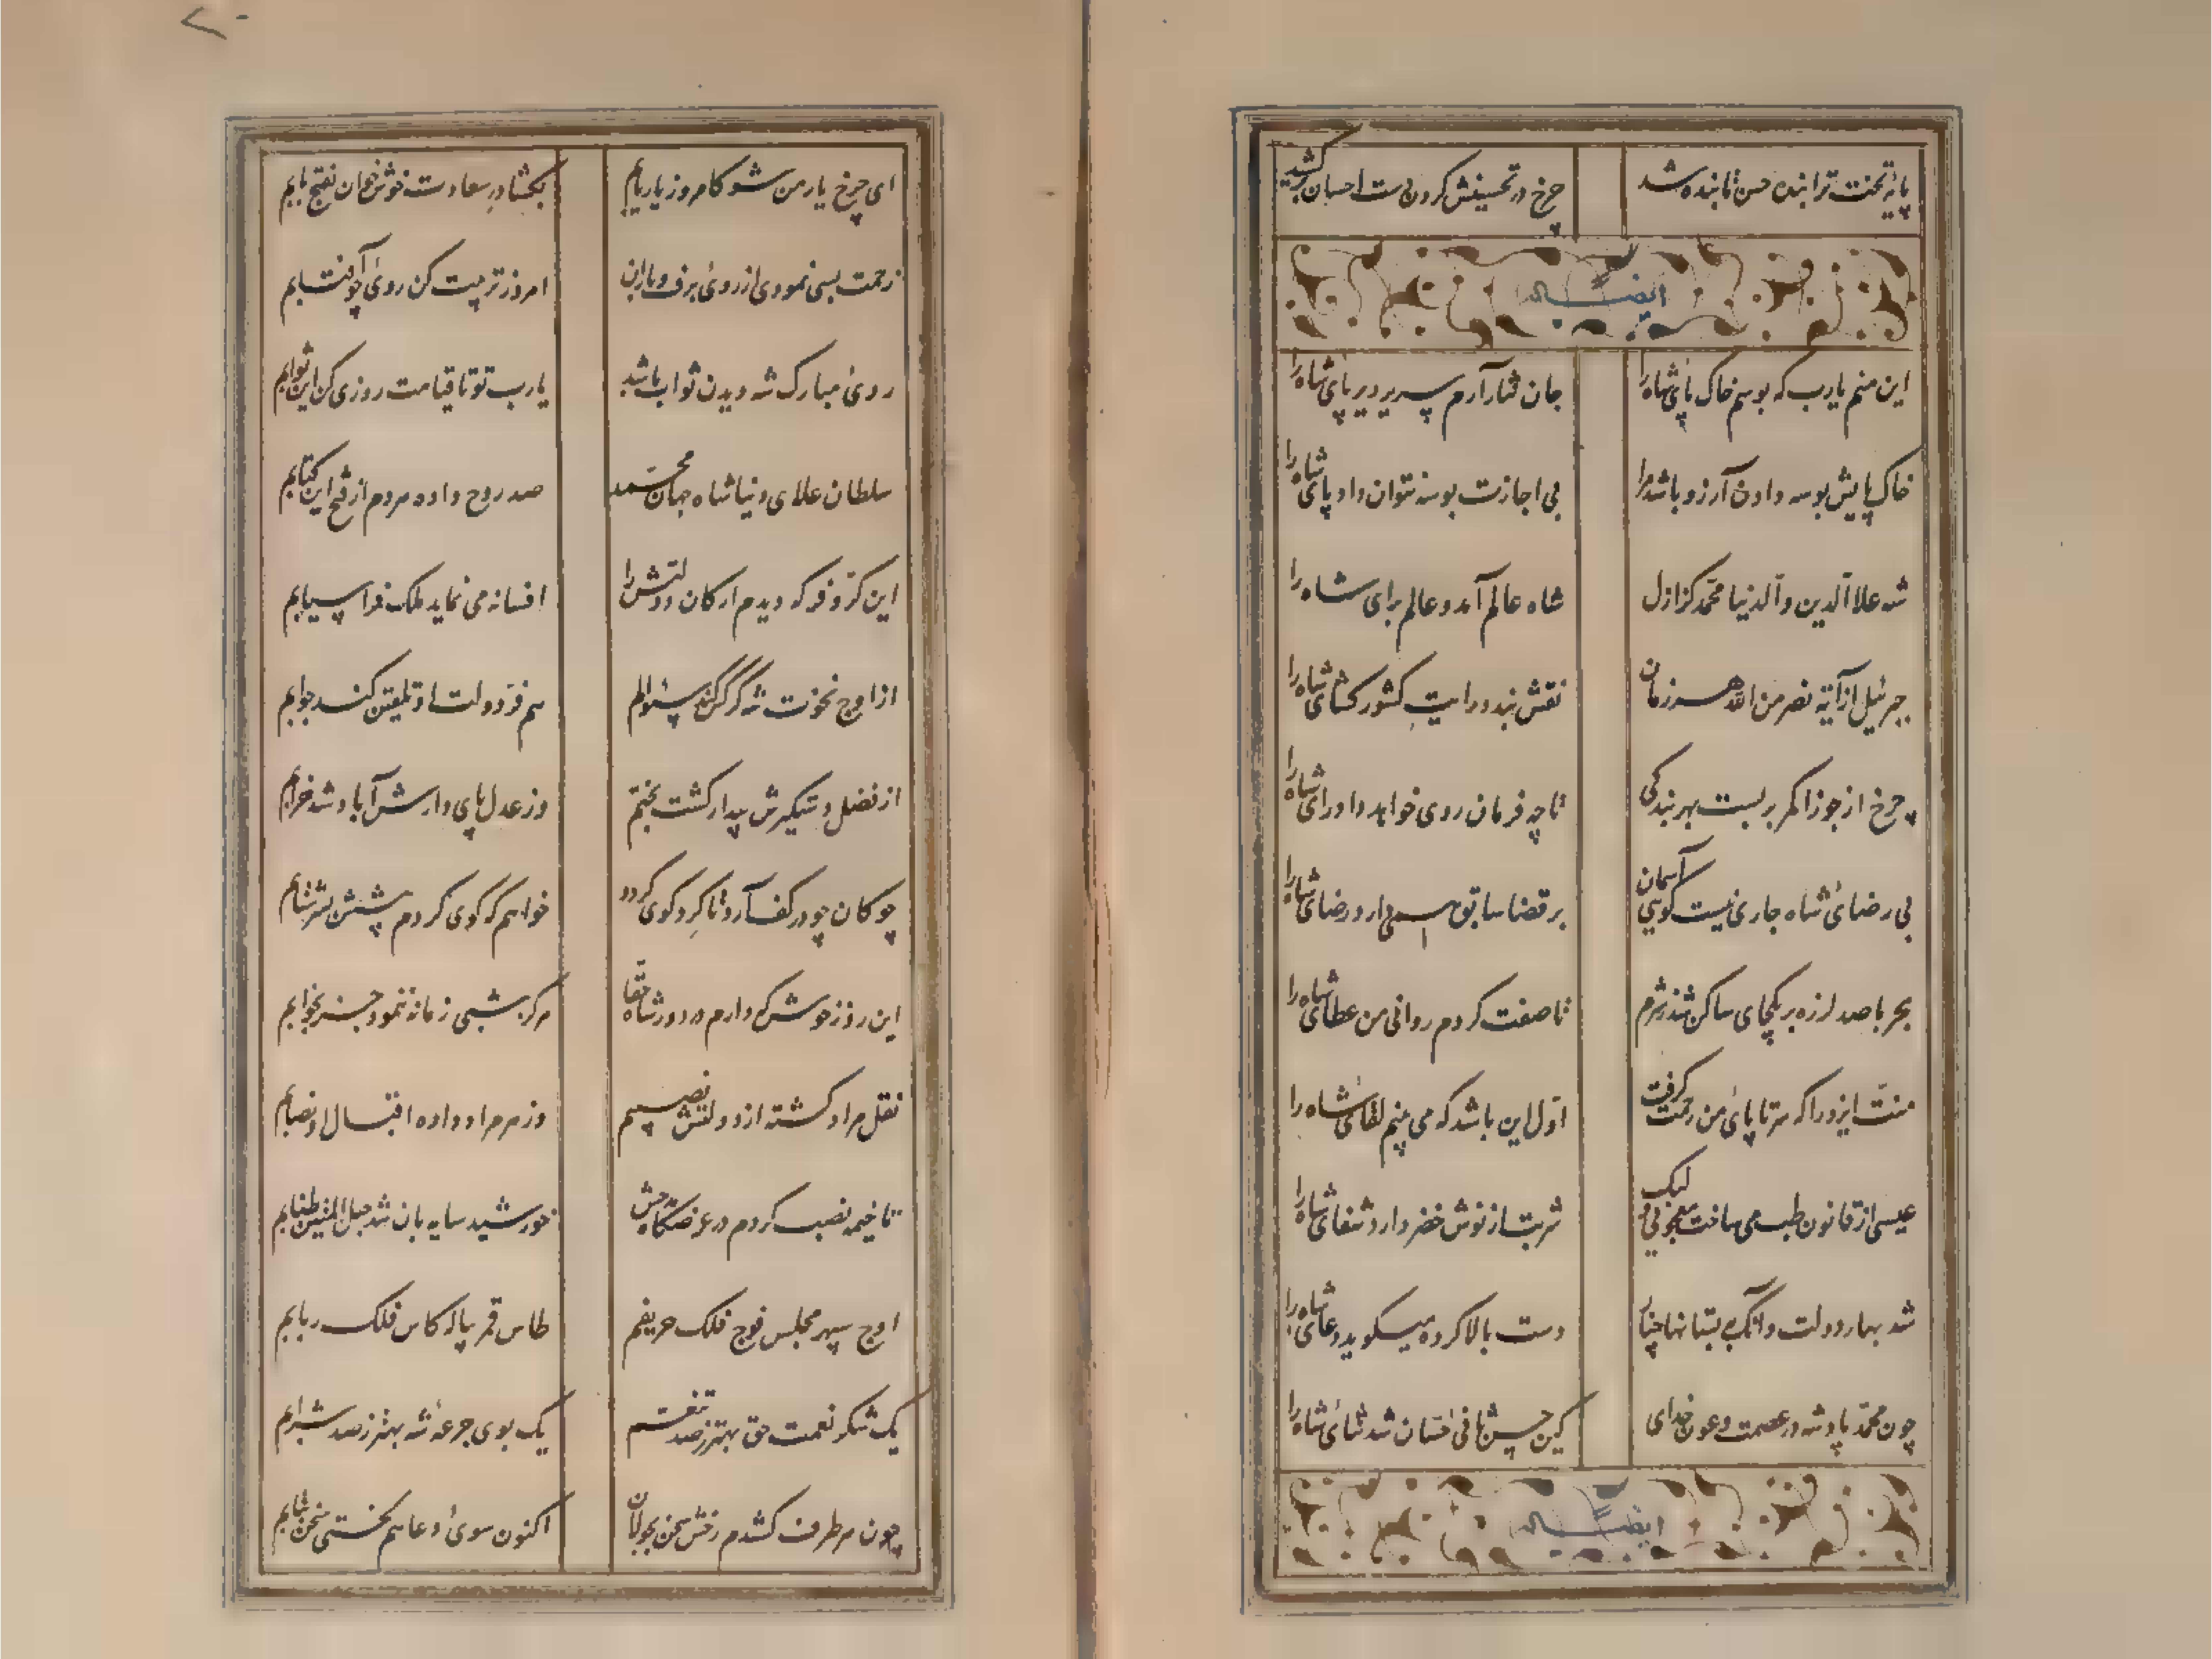 پایهٔ تخت ترا بنده حسن تا بنده شد
چرخ در تحسینش کردن دست احسان برکشید
ایضاً له
این منم یارب که بوسم خاک پای شاه را
جان نثار آرم پسر بر دیر پای شاه را
خاک پایش بوسه دادن آرزو باشد مرا
بی اجازت بوسه نتوان داد پای شاه را
شه علاالدین والدنیا محمد کز ازل
شاه عالم آمد و عالم برای شاه را
جبرئیل از آیهٔ نصر من الله هر زمان
نقش بندد رایت کشور کشای شاه را
چرخ از جوزا کمر بر بست بهر بندگی
تا چه فرمان روی خواهد داد رای شاه را
بی رضای شاه جاری نیست گویی آسمان
بر قضا سابق همی دارد رضای شاه را
بحر با صد لرزه بر یکجای ساکن شد ز شرم
تا صفت کردم روانی من عطای شاه را
منت ایزد را که سر تا پای من رحمت گرفت
اول این باشد که می بینم لقای شاه را
عیسی از قانون طب می ساخت معجونی لیک
شربت از نوش خضر دارد شفای شاه را
شد بهار دولت و آنگه ببستانها چنار
دست بالا کرده میگوید دعای شاه را
چون محمد پادشه در عصمت و عون خدای
کین حسن ثانی حسان شد ثنای شاه را
ایضاً له
ای چرخ یار من شو کامروز یار یابم
بکشا در سعادت خوش خوان نفتح بابم
زحمت بسی نمودی از روی برف و باران
امروز تربیت کن روی چو آفتابم
روی مبارک شه دیدن ثواب باشد
یارب تو تا قیامت روزی کن این ثوابم
سلطان علای دنیا شاه جهان محمد
صد روح داده مردم از فتح این کتابم
این کر و فر که دیدم ارکان دولتش را
افسانه می نماید ملک فراسیابم
از اوج نخوت شه گر کند سئوالم
هم فر دولت او تلقین کند جوابم
از فضل دستگیرش بیدار گشت بختم
وز عدل پای دارش آباد شد خرابم
چوکان چو در کف آرد تا گرد گوی گردد
خواهم که گوی گردم پیشش بسر شتابم
این روز خوش که دارم در دور شاه حقا
هرگز شبی زمانه ننمود جز بخوابم
نقل مراد گشته از دولتش نصیبم
وز هر مراد داده اقبال او نصابم
تا خیمه نصب کردم در عرصگاه مدحش
خورشید سایه بان شد حبل المتین طنابم
اوج سپهر مجلس فوج فلک حریفم
طاس قمر پیاله کاس فلک ربابم
یک شکر نعمت حق بهتر ز صد تنعم
یک بوی جرعهٔ شه بهتر ز صد شرابم
چون هر طرف کشدم رخش سخن بجولان
اکنون سوی دعا هم لختی سخن بتابم